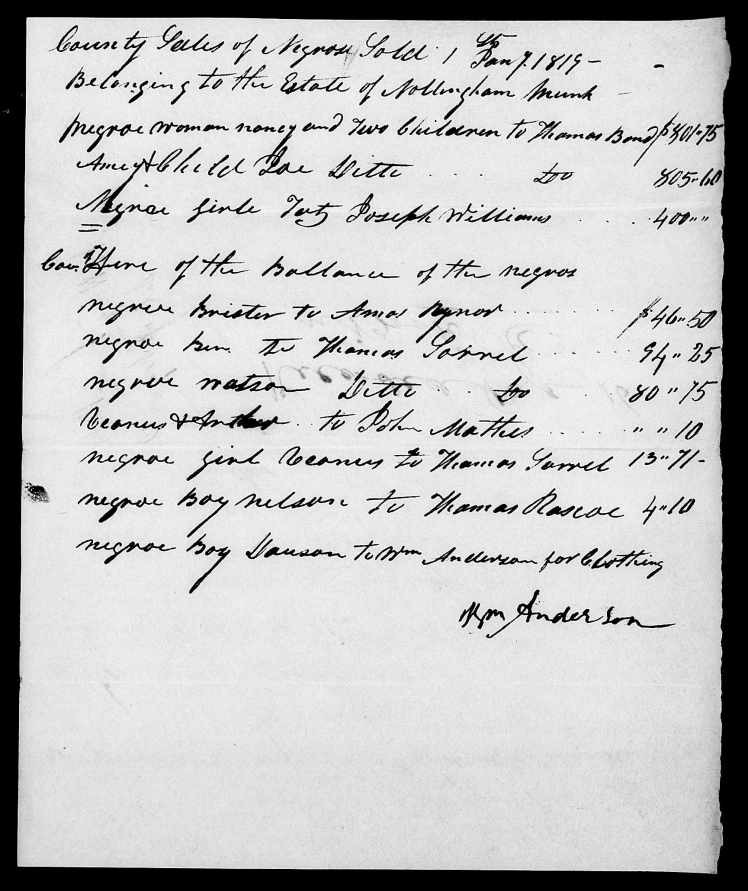 County Sales of Negroes Sold 1st Jany. 1819 -
Belonging to the Estate of Nottingham Munk
negroe woman nancy and Two Children to Thomas Bond $801"75
Amey & Child Joe Ditto .... Do 805"60
Negroe Girle to Joseph Williams ..... 400""
Hire of the Ballance of the negros
negroe Brister to Amos ...... $46"50
negroe Ben to Thomas Sorrel ...... 94"25
negroe watson Ditto .. Do .. 80"75
Veanus & .. to John Mathis ..... " " 10
negroe girl Veanus to Thomas Sorrel 13"71-
negroe Boy nelson to Thomas Rascoe 4"10
negroe Boy Dauson to Wm Anderson for Clothing
Wm Anderson